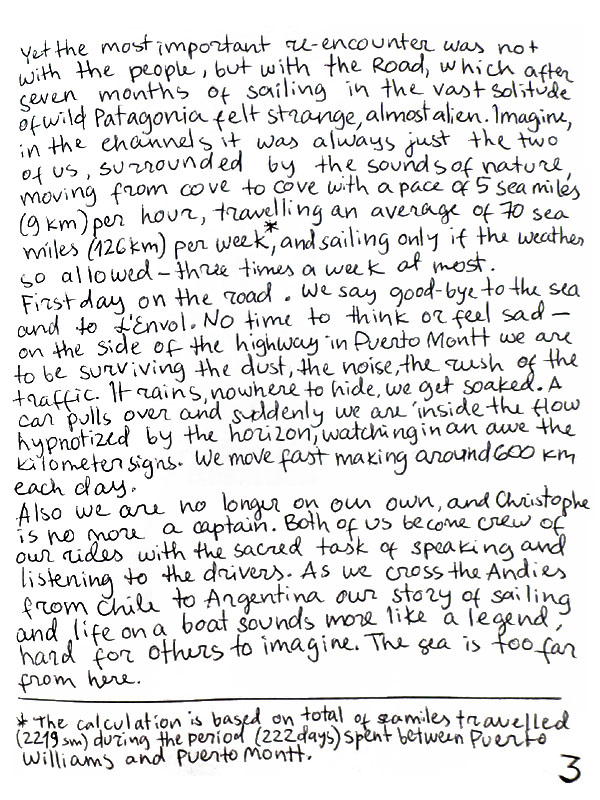 Yet the most important re-encounter was not
with the people, but with the Road, which after
seven months of sailing in the vast solitude
of wild Patagonia felt strange, almost alien. Imagine,
in the channels it was always just the two
of us, surrounded by the sounds of nature,
moving from cove to cove with a pace of 5 sea miles
(9 km) per hour, travelling an average of 70 sea
miles (126 km) per week*, and sailing only if the weather
so allowed – three times a week at most.
First day on the road. We say good-bye to the sea
and to L'Envol. No time to think or feel sad –
on the side of the highway in Puerto Montt we are
to be surviving the dust, the noise, the rush of the
traffic. It rains, nowhere to hide, we get soaked. A
car pulls over and suddenly we are inside the flow
hypnotized by the horizon, watching in an awe the
kilometer signs. We move fast making around 600 km
each day.
Also we are no longer on our own, and Christophe
is no more a captain. Both of us become crew of
our rides with the sacred task of speaking and
listening to the drivers. As we cross the Andies
from Chile to Argentina our story of sailing
and life on a boat sounds more like a legend,
hard for others to imagine. The sea is too far
from here.
* The calculation is based on total of seamiles travelled
(2219 sm) during the period (222 days) spent between Puerto
Williams and Puerto Montt.
3